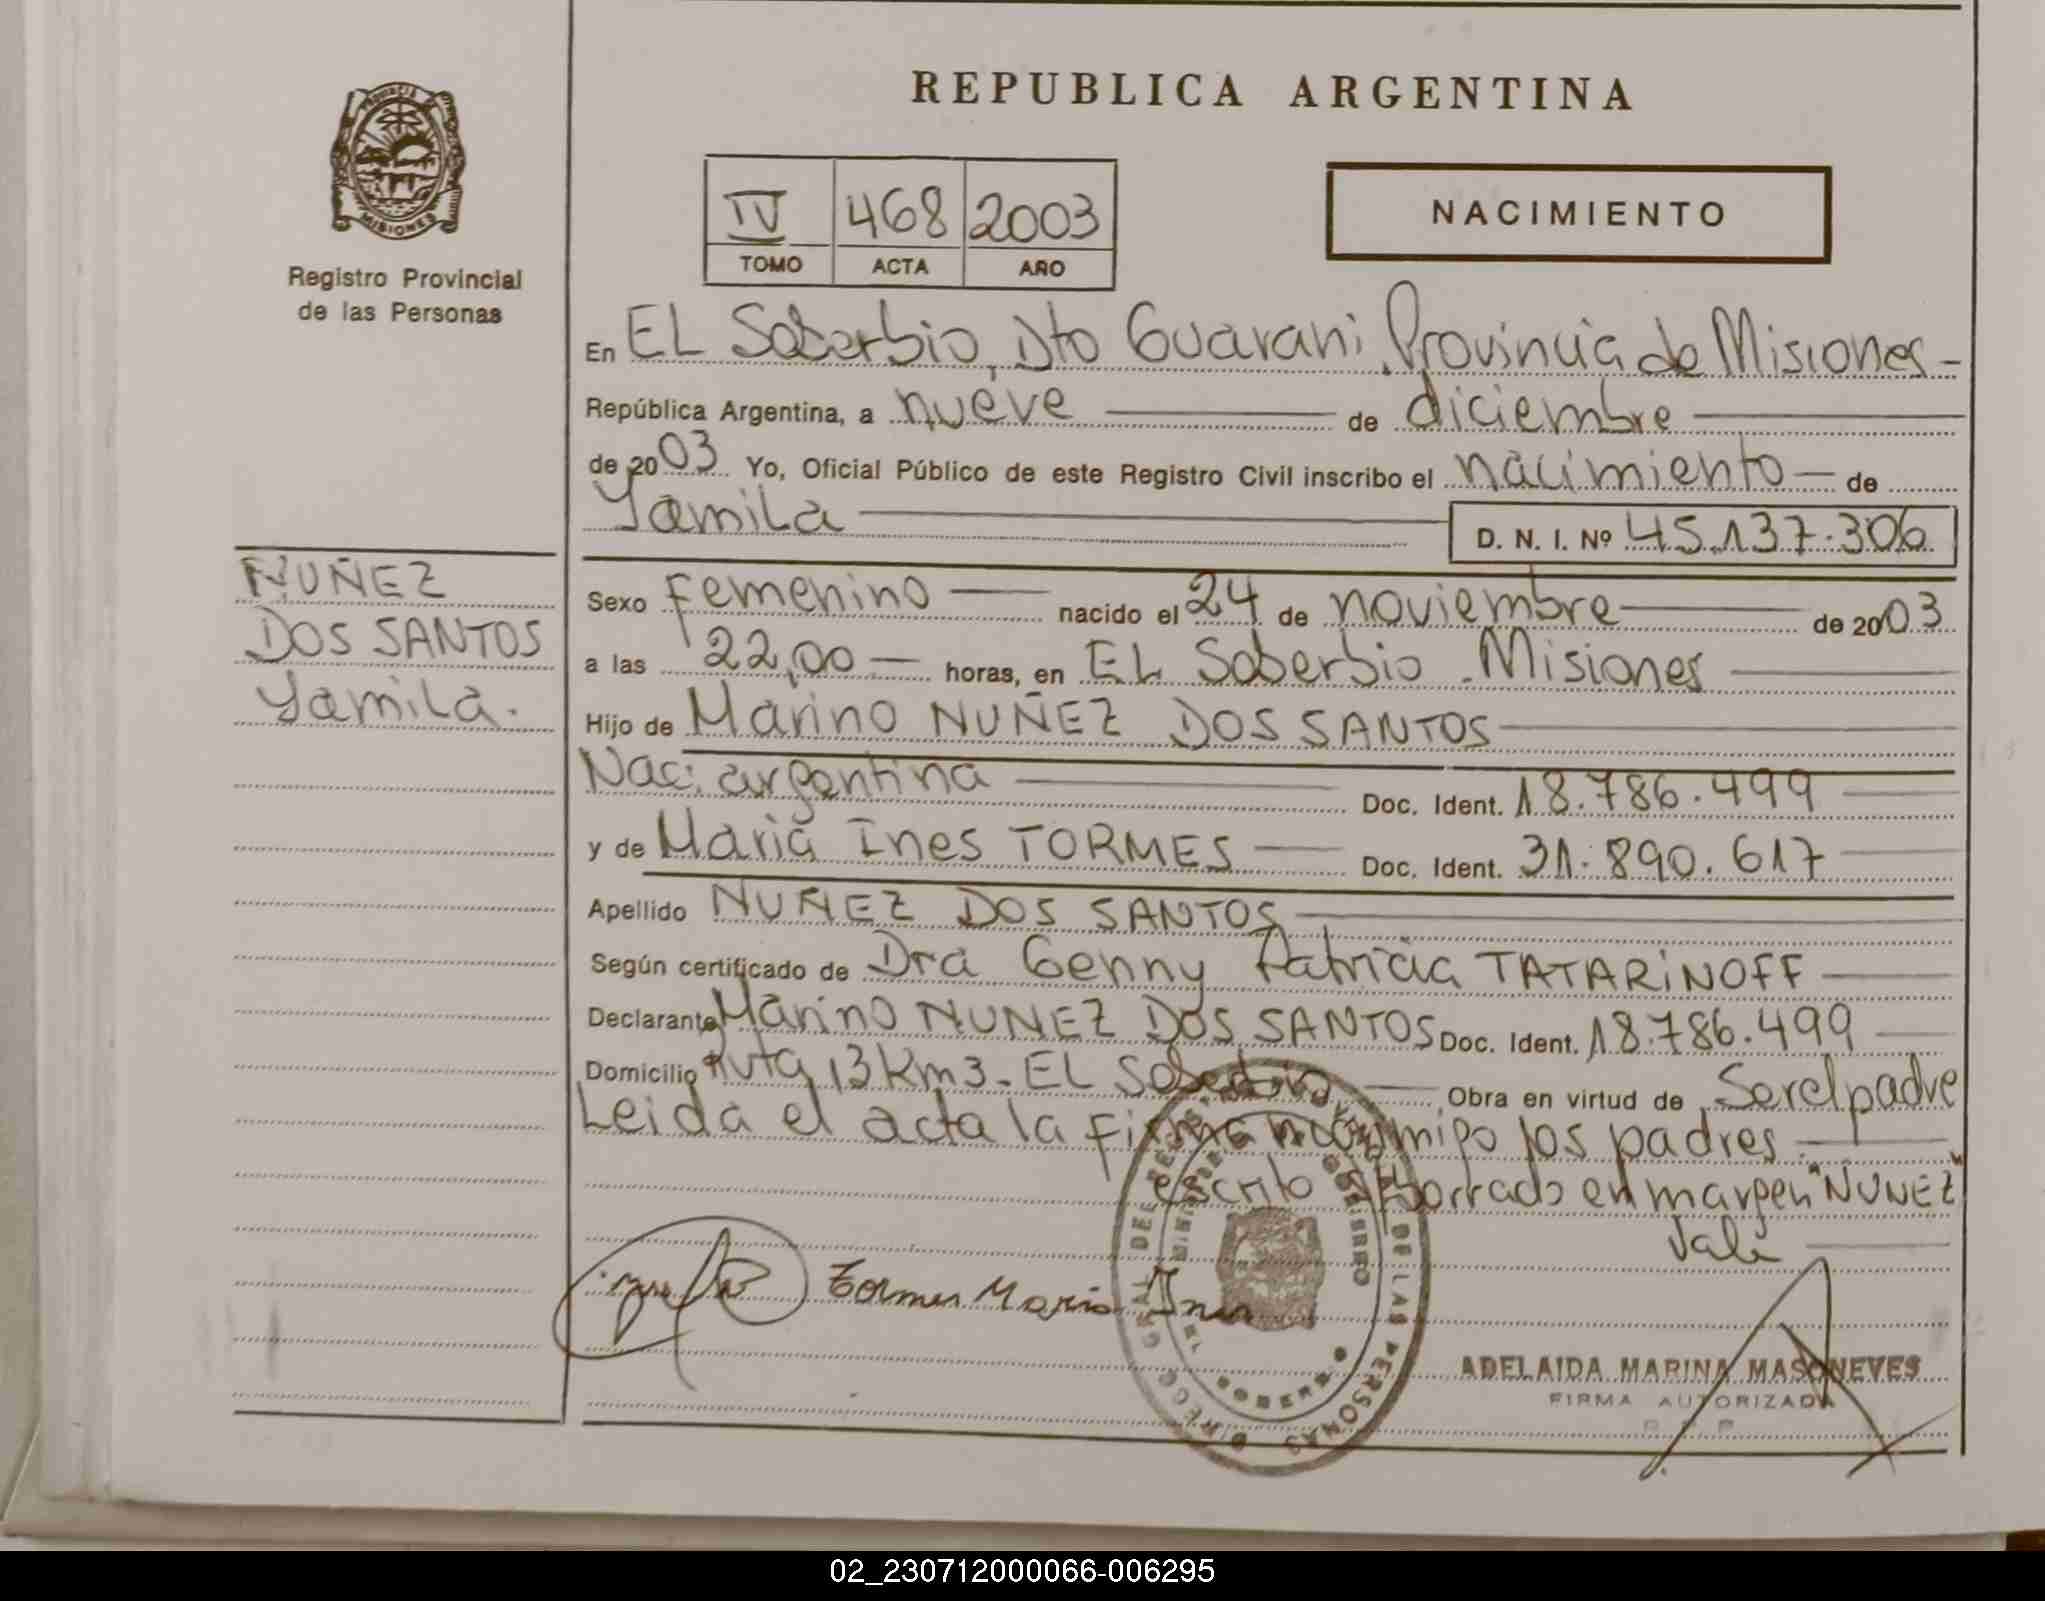 REPUBLICA ARGENTINA
PROVINCIA DE MISIONES
Registro Provincial
de las Personas
IV 468 2003
TOMO ACTA AÑO
NACIMIENTO
En EL Soberbio, Dto Guarani Provincia de Misiones -
República Argentina, a nueve de diciembre
de 2003 Yo, Oficial Público de este Registro Civil inscribo el nacimiento de
Yamila D. N. I. Nº 45.137.306
NUÑEZ
DOS SANTOS
Yamila.
Sexo Femenino nacido el 24 de noviembre de 2003
a las 22,00 horas, en EL Soberbio. Misiones
Hijo de Marino NUÑEZ DOS SANTOS
Nac: argentina Doc. Ident. 18.786.499
y de Maria Ines TORMES Doc. Ident. 31.890.617
Apellido NUÑEZ DOS SANTOS
Según certificado de Dra Genny Patricia TATARINOFF
Declarante Marino NUNEZ DOS SANTOS Doc. Ident. 18.786.499
Domicilio Ruta 13 Km3 - EL Soberbio Obra en virtud de Ser el padre
Leida el acta la firma conmigo los padres
escrito s/borrado en margen "NUNEZ"
Vale
Tormes Maria Ines
ADELAIDA MARINA MASONEVES
FIRMA AUTORIZADA
R P P
DE LAS PERSONAS
02_230712000066-006295